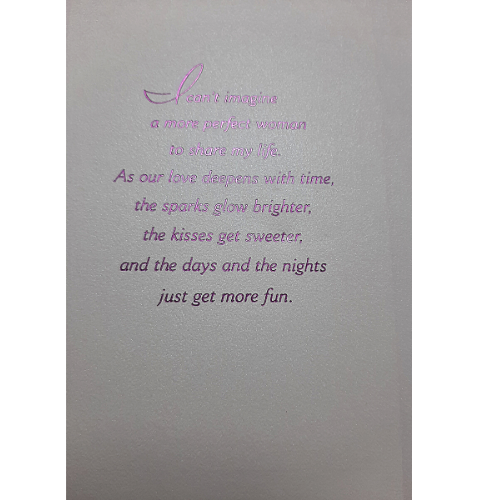 I can't imagine
a more perfect woman
to share my life.
As our love deepens with time,
the sparks glow brighter,
the kisses get sweeter,
and the days and the nights
just get more fun.